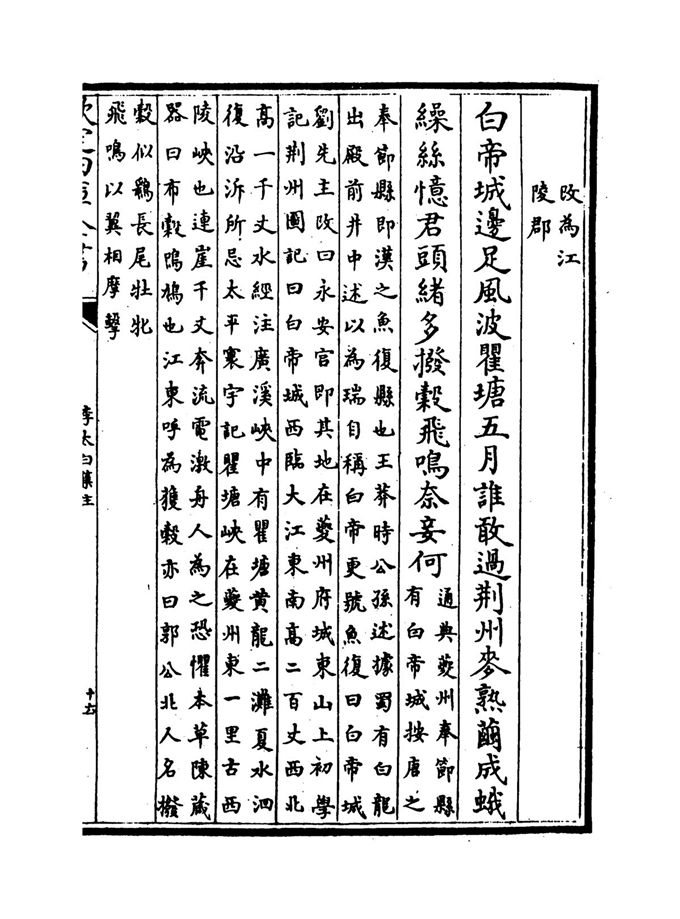 改為江
陵郡
白帝城邊足風波瞿塘五月誰敢過荆州麥熟繭成蛾
繰絲憶君頭緒多撥穀飛鳴奈妾何
通典夔州奉節縣
有白帝城按唐之
奉節縣即漢之魚復縣也王莽時公孫述據蜀有白龍
出殿前井中述以為瑞自稱白帝更號魚復曰白帝城
劉先主改曰永安宫即其地在夔州府城東山上初學
記荆州圖記曰白帝城西臨大江東南高二百丈西北
高一千丈水經注廣溪峽中有瞿塘黄龍二灘夏水洄
復沿泝所忌太平寰宇記瞿塘峽在夔州東一里古西
陵峽也連崖千丈奔流電激舟人為之恐懼本草陳藏
器曰布穀鳲鳩也江東呼為獲穀亦曰郭公北人名撥
穀似鷂長尾牡牝
飛鳴以翼相摩擊
欽定四庫全書
李太白集注